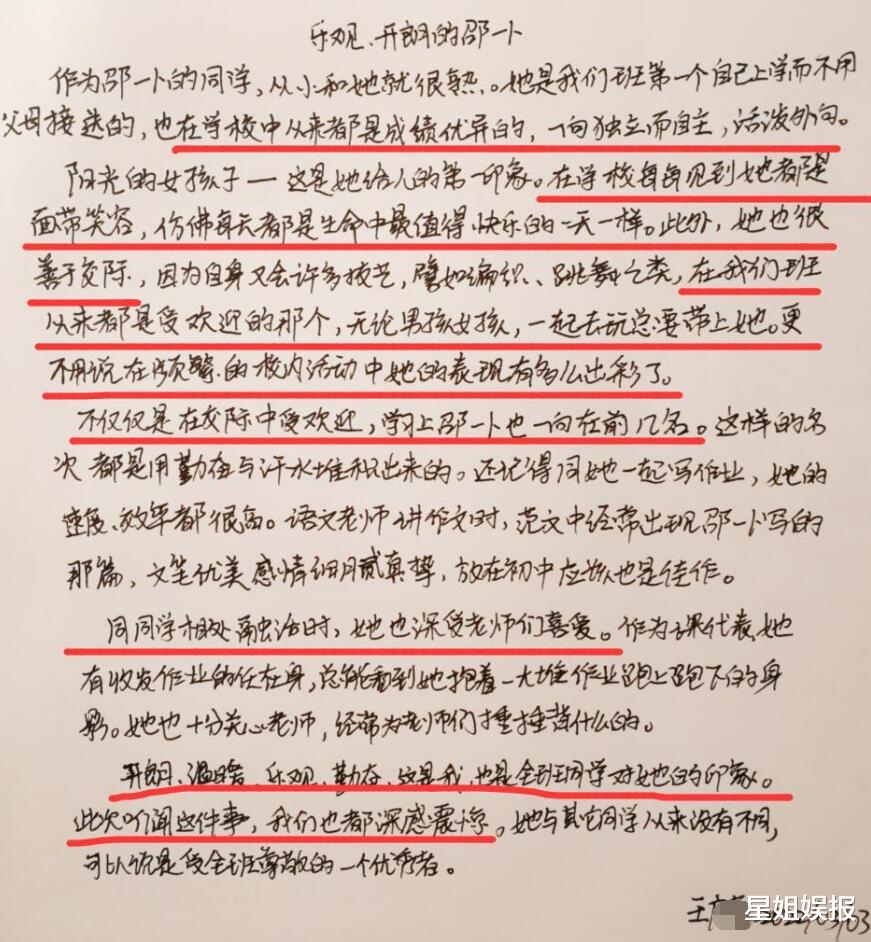 乐观、开朗的邵一卜
作为邵一卜的同学，从小和她就很熟。她是我们班第一个自己上学而不用
父母接送的，也在学校中从来都是成绩优异的，一向独立而自主，活泼外向。
阳光的女孩子——这是她给人的第一印象。在学校每每见到她都是
面带笑容，仿佛每天都是生命中最值得快乐的一天一样。此外，她也很
善于交际，因为自身又会许多技艺，譬如编织、跳舞之类，在我们班
从来都是受欢迎的那个，无论男孩女孩，一起去玩总要带上她。更
不用说在频繁的校内活动中她的表现有多么出彩了。
不仅仅是在交际中受欢迎，学习上邵一卜也一向在前几名。这样的名
次都是用勤奋与汗水堆积出来的。还记得同她一起写作业，她的
速度、效率都很高。语文老师讲作文时，范文中经常出现邵一卜写的
那篇，文笔优美感情细腻真挚，放在初中应该也是佳作。
同同学相处融洽时，她也深受老师们喜爱。作为课代表，她
有收发作业的任在身，总能看到她抱着一大堆作业跑上跑下的身
影。她也十分关心老师，经常为老师们捶捶背什么的。
开朗、温暖、乐观、勤奋，这是我，也是全班同学对她的印象。
此次听闻这件事，我们也都深感震惊。她与其它同学从来没有不同，
可以说是受全班尊敬的一个优秀者。
王
星姐娱报